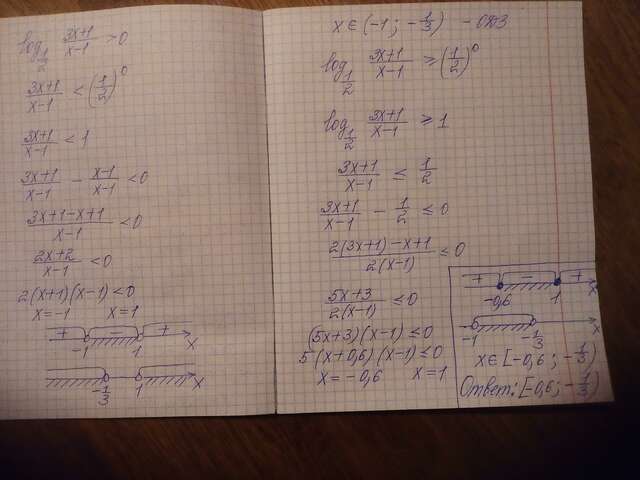 log_{1/2} (3x+1)/(x-1) > 0
(3x+1)/(x-1) < (1/2)^0
(3x+1)/(x-1) < 1
(3x+1)/(x-1) - (x-1)/(x-1) < 0
(3x+1-x+1)/(x-1) < 0
(2x+2)/(x-1) < 0
2(x+1)(x-1) < 0
x=-1 x=1
+ - +
-1 1 x
-1/3 1 x
x ∈ (-1; -1/3) - ОДЗ
log_{1/2} (3x+1)/(x-1) ≥ (1/2)^0
log_{1/2} (3x+1)/(x-1) ≥ 1
(3x+1)/(x-1) ≤ 1/2
(3x+1)/(x-1) - 1/2 ≤ 0
(2(3x+1)-x+1)/(2(x-1)) ≤ 0
(5x+3)/(2(x-1)) ≤ 0
(5x+3)(x-1) ≤ 0
5(x+0,6)(x-1) ≤ 0
x=-0,6 x=1
+ - +
-0,6 1 x
-1 -1/3 x
x ∈ [-0,6; -1/3)
Ответ: [-0,6; -1/3)